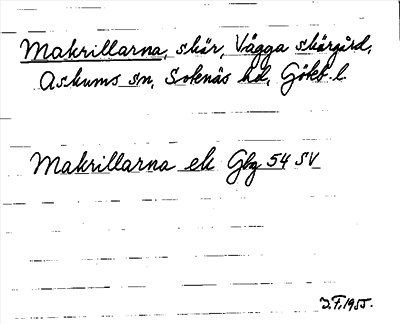 Makrillarna, skär, Vägga skärgård,
Askums sn, Sotenäs hd, Götebl.
Makrillarna ek Gbg 54 SV
J.F. 1955.